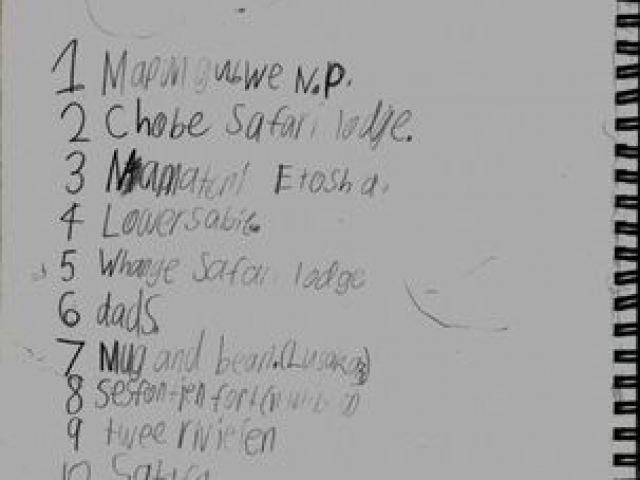 1 Mapungubwe N.P.
2 Chobe Safari lodge.
3 Etosha.
4 Lowersabie
5 Whange Safari lodge
6 dads
7 Mug and bean.(Lusaka)
8 sesfontjen fort
9 twee rivieren
10